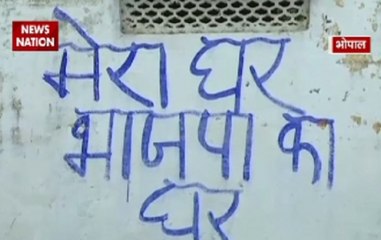 NEWS
NATION
भोपाल
मेरा घर
भाजपा का
घर